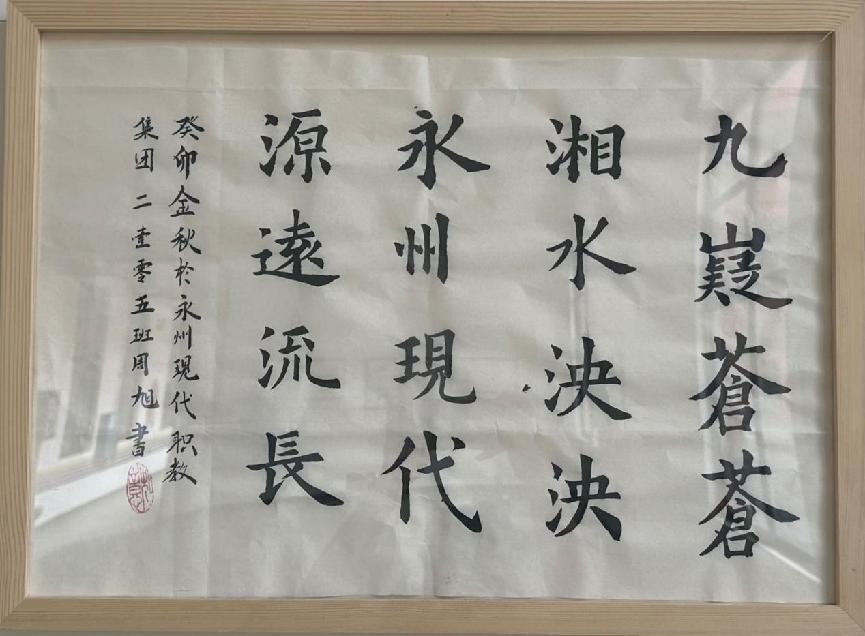 九嶷蒼蒼
湘水泱泱
永州現代
源遠流長
癸卯金秋於永州現代职教
集团二壹零五班周旭書